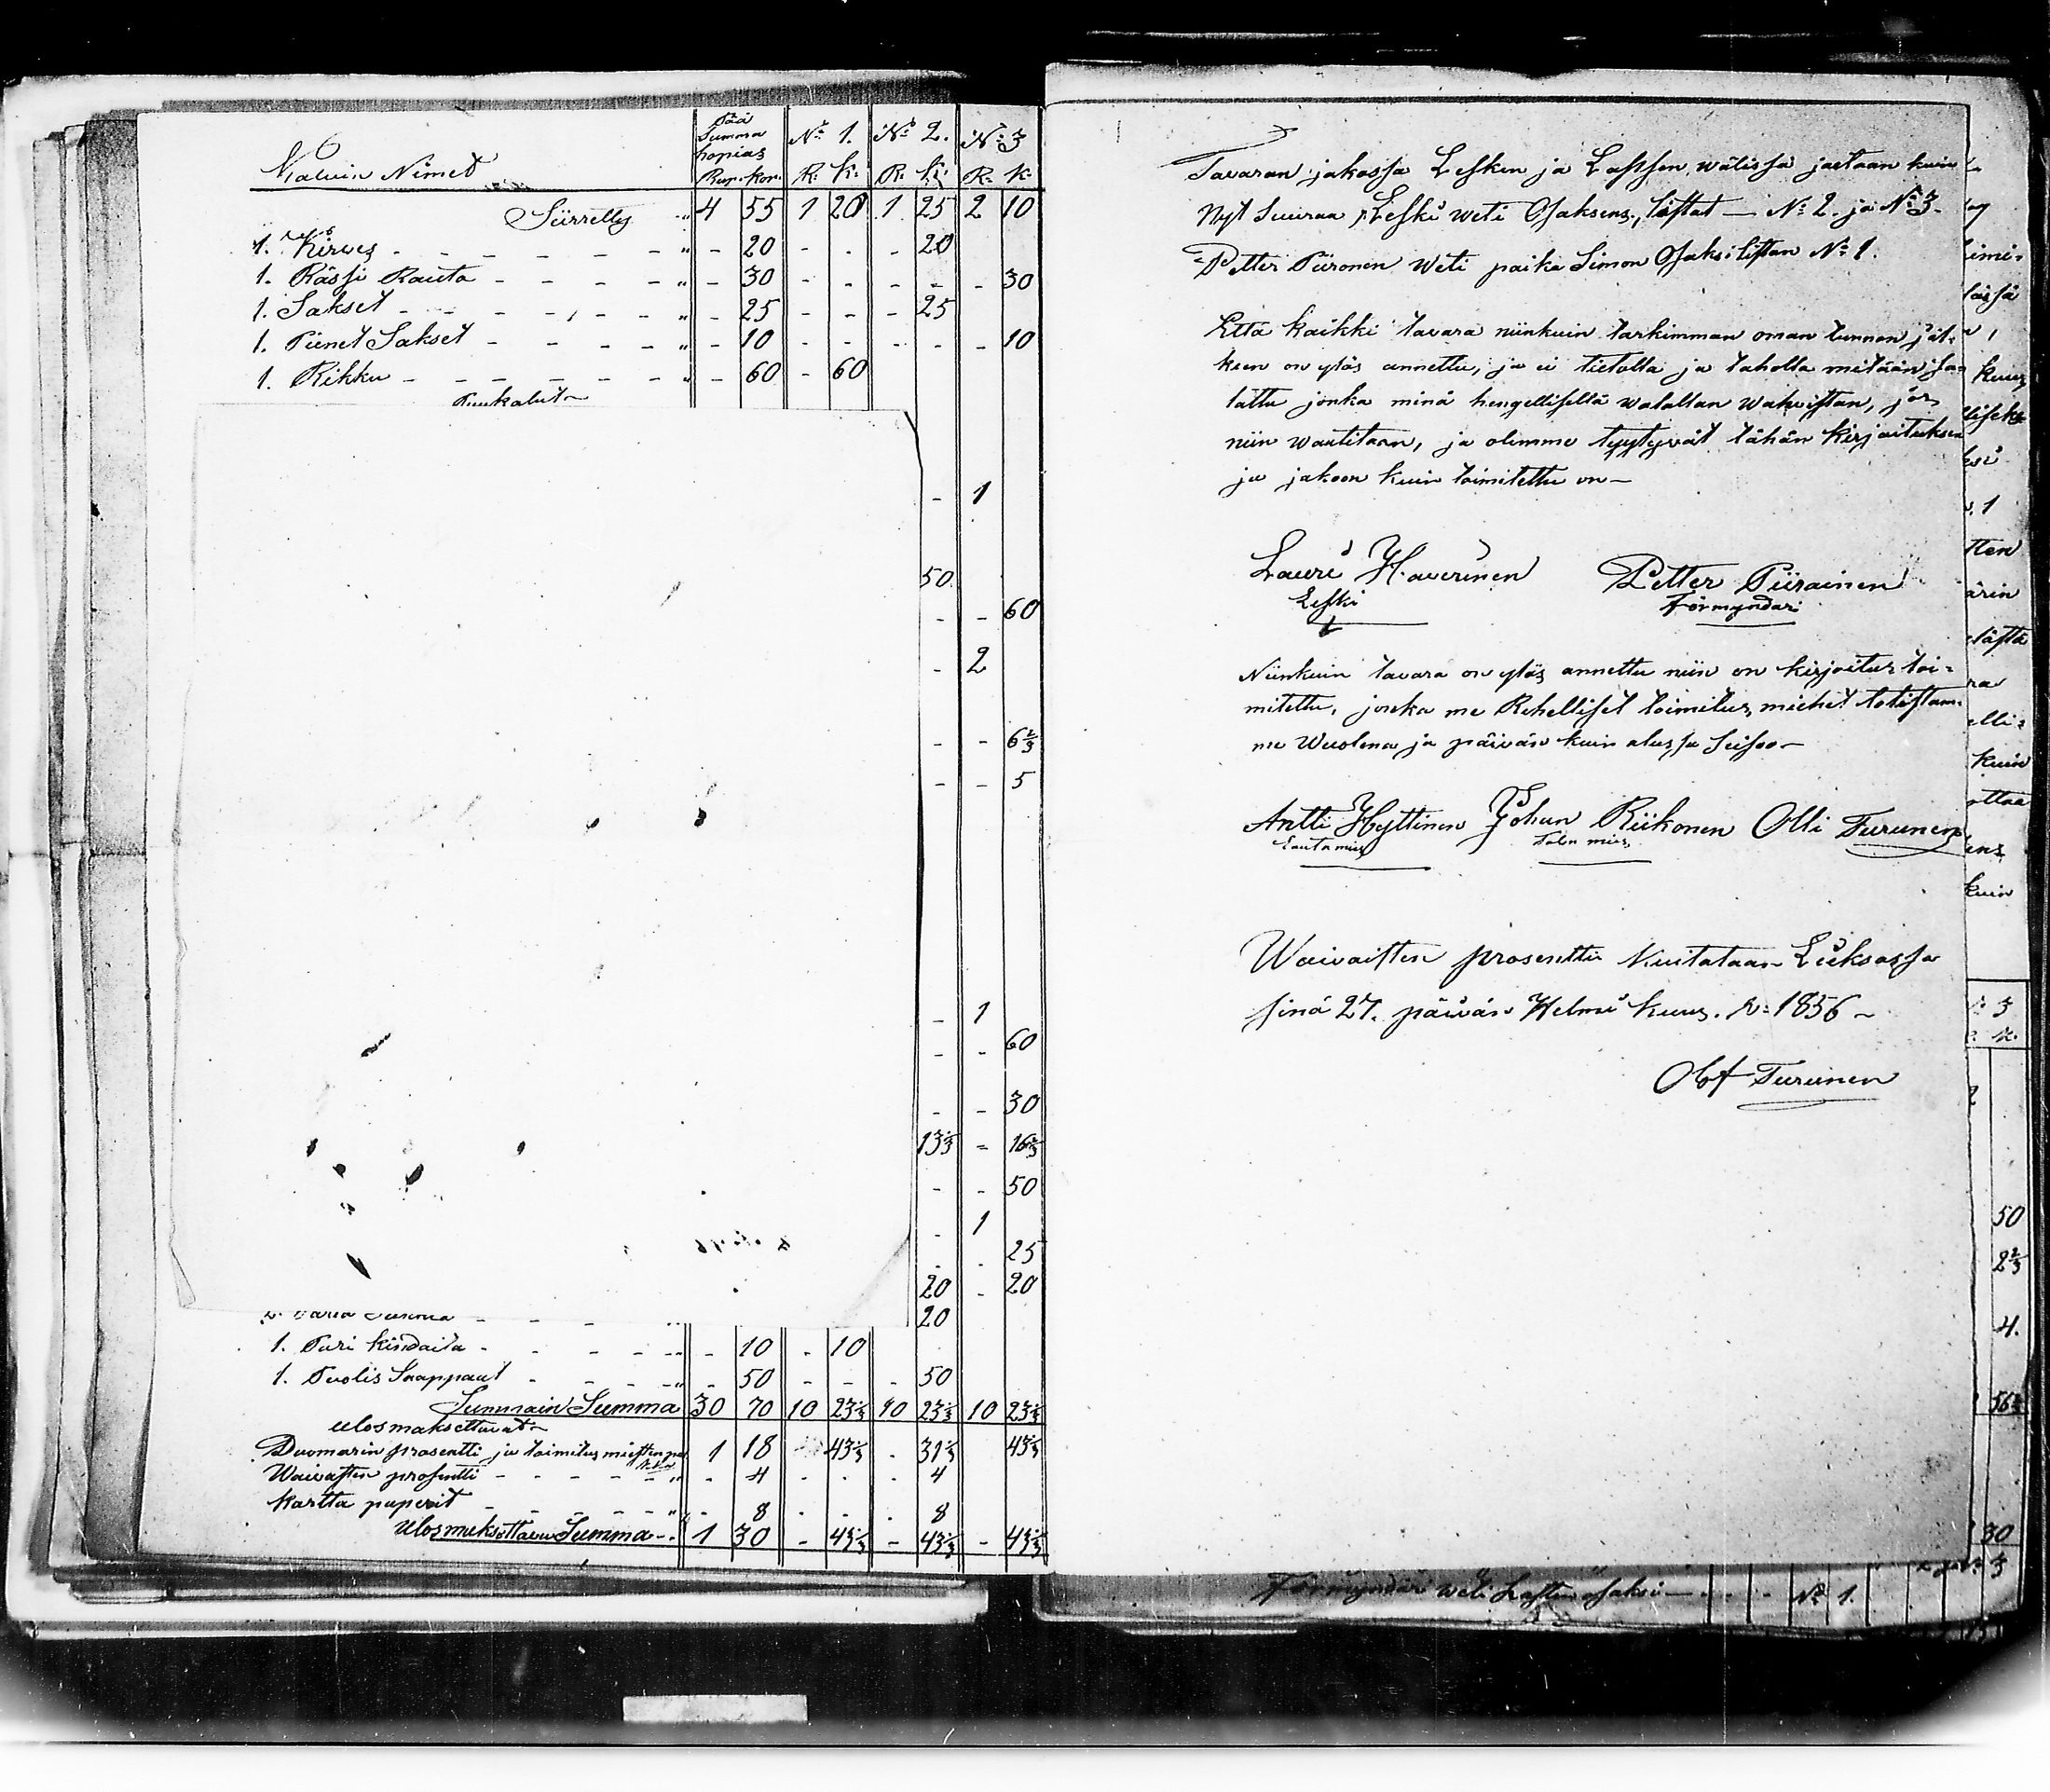 Kaluin Nimet Pää Summa hopias Rup. Kop. № 1. R: K: № 2. R: K: № 3 R: K:
Siirretty 4 55 1 20 1 25 2 10
1. Kirwes - 20 - - - 20
1. Rässi Rauta - 30 - - - - - 30
1. Sakset - 25 - - - 25
1. Pienet Sakset - 10 - - - - - 10
1. Rikku - 60 - 60
Puukalut
- 1
50
- - 60
- 2
- - 6 2/3
- - 5
- 1
- - 60
- - 30
13 1/3 - 16 2/3
- - 50
- 1
- - 25
20 - 20
20
1. Puri kindaita - 10 - 10
1. Puolis Saappaat - 50 - - - 50
Summain Summa 30 70 10 23 1/3 10 23 1/3 10 23 1/3
Ulosmaksettawat
Duomarin prosentti ja toimitus miesten 1 18 - 43 1/3 - 31 1/3 43 1/3
Waiwasten prosentti - 4 - - - 4
Kartta paperit - 8 - - - 8
Ulosmaksettawa Summa 1 30 - 43 1/3 - 43 1/3 - 43 1/3
Tavaran jakossa Lesken ja Lapsen wälissä jaetaan kuin
Nyt Seuraa, Leski weti Osaksens, listat — № 2. ja № 3.
Petter Piironen Weti paika Simon Osaksi listan № 1.
Että kaikki tavara niinkuin tarkimman oman tunnon jäl-
keen on ylös annettu, ja ei tietolla ja taholla mitään sa-
lattu jonka minä hengellisellä walallan wahwistan, jos
niin waatitaan, ja olemme tyytywät tähän kirjoituksen
ja jakoon kuin toimitettu on—
Lauri Haverinen Petter Piirainen
Leski Förmyndari
Niinkuin tavara on ylös annettu niin on kirjoitus toi-
mitettu, jonka me Rehelliset toimitus miehet totistam-
me Wuolena ja päivän kuin alussa seisoo—
Antti Hyttinen Johan Riikonen Olli Turunen
Lautamies Talon mies
Waivaisten prosentti Kuitataan Lieksassa
sinä 27. päivän Helmi kuus. v: 1856 —
Olof Turunen
Förmyndäri weti Lasten osaksi — № 1.